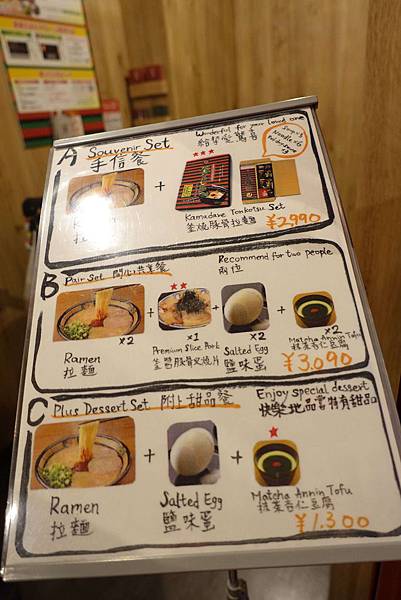 A Souvenir Set
手信餐
Wonderful for your loved one
給摯愛驚喜
Ramen
拉麵
+
Kamadare Tonkotsu Set
釜燒豚骨拉麵
¥2,990
B Pair Set 開心共享餐
Recommend for two people
兩位
×2 + ×1 + ×2 + ×2
Ramen
拉麵
Premium Slice Pork
釜醬豚骨叉燒片
Salted Egg
鹽味蛋
Matcha Annin Tofu
抹茶杏仁豆腐
¥3,090
C Plus Dessert Set 附上甜品餐
Enjoy special dessert
快樂地品嘗特有甜品
+ +
Ramen
拉麵
Salted Egg
鹽味蛋
Matcha Annin Tofu
抹茶杏仁豆腐
¥1,300